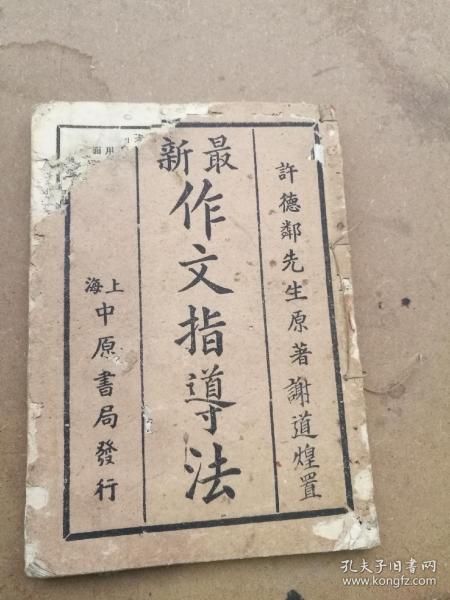 許德鄰先生原著謝道煌置
最新
作文指導法
上海
中原書局發行
孔夫子旧书网
www.kongfz.com